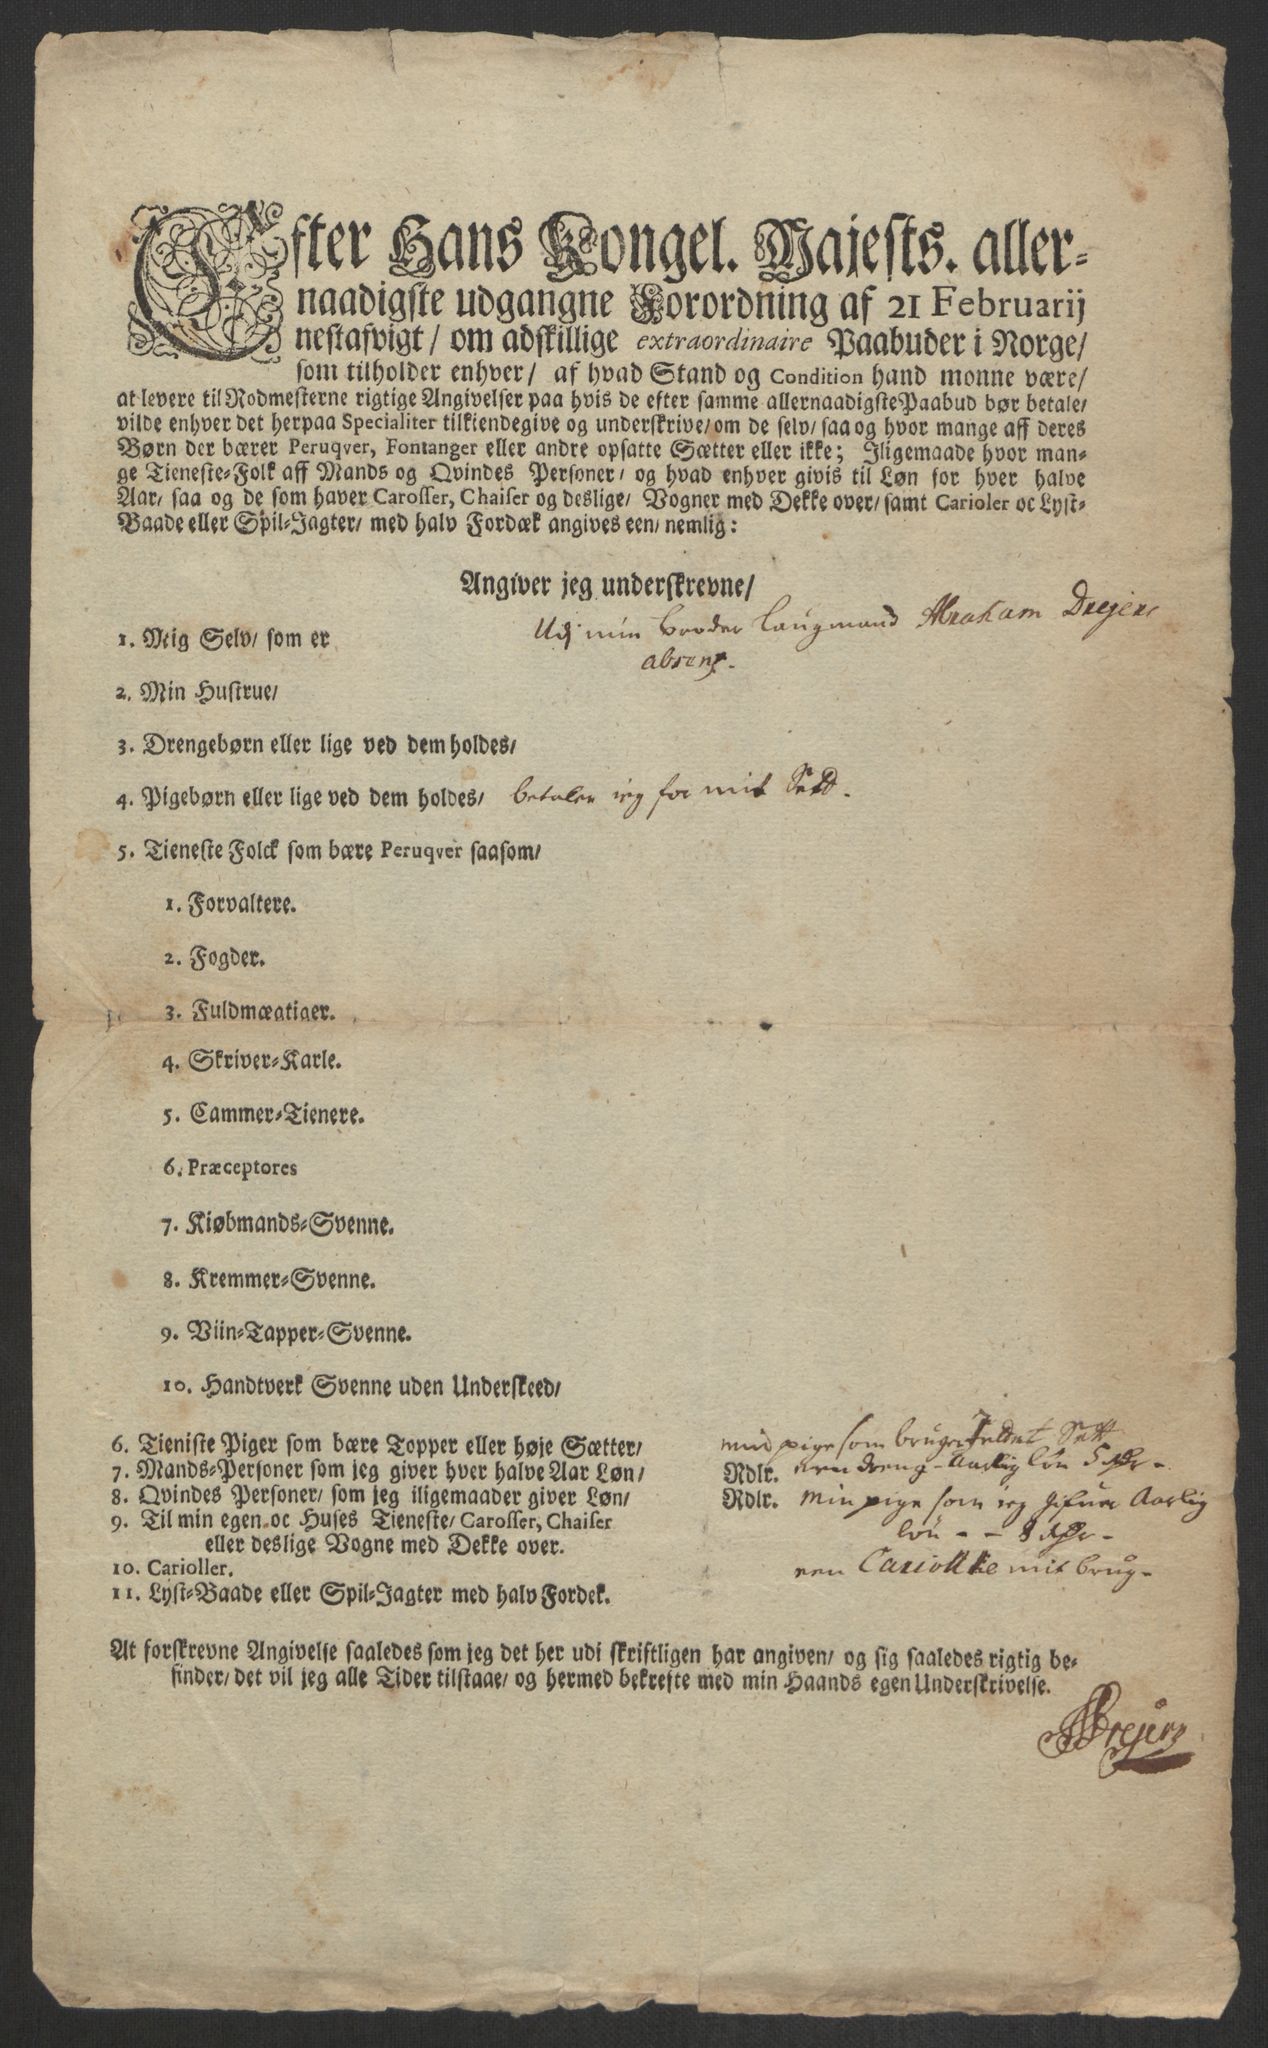 Efter Hans Kongel. Majests. aller-
naadigste udgangne Forordning af 21 Februarij
nestafvigt/ om adskillige extraordinaire Paabuder i Norge/
som tilholder enhver/ af hvad Stand og Condition hand monne være/
at levere til Rodmesterne rigtige Angivelser paa hvis de efter samme allernaadigste Paabud bør betale/
vilde enhver det herpaa Specialiter tilkiendegive og underskrive/ om de selv/ saa og hvor mange aff deres
Børn der bærer Peruqver, Fontanger eller andre opsatte Sætter eller ikke; Iligemaade hvor man-
ge Tieneste-Folk aff Mands og Qvindes Personer/ og hvad enhver givis til Løn for hver halve
Aar/ saa og de som haver Carosser, Chaiser og deslige/ Vogner med Dekke over/ samt Carioler oc Lyst-
Baade eller Spil-Jagter/ med halv Fordæk angives een/ nemlig:
Angiver jeg underskrevne/
1. Mig Selv/ som er Udj min broder Laugmand Abraham Dreyers
absens.
2. Min Hustrue/
3. Drengebørn eller lige ved dem holdes/
4. Pigebørn eller lige ved dem holdes/ betaler ieg for mit Sett.
5. Tieneste Folck som bære Peruqver saasom/
1. Forvaltere.
2. Fogder.
3. Fuldmægtiger.
4. Skriver-Karle.
5. Cammer-Tienere.
6. Præceptores
7. Kiøbmands-Svenne.
8. Kremmer-Svenne.
9. Viin-Tapper-Svenne.
10. Handtverk Svenne uden Underskeed/
6. Tieniste Piger som bære Topper eller høje Sætter/ min pige som bruger Sett
7. Mands-Personer som jeg giver hver halve Aar Løn/ Rdlr. een dreng - Aarlig løn 5 Rdr -
8. Qvindes Personer/ som jeg iligemaader giver Løn/ Rdlr. Min pige som ieg gifuer Aarlig
løn - - 8 Rdr -
9. Til min egen oc Huses Tieneste/ Carosser, Chaiser
eller deslige Vogne med Dekke over.
10. Carioller. een Cariolle mit brug -
11. Lyst-Baade eller Spil-Jagter med halv Fordek.
At forskrevne Angivelse saaledes som jeg det her udi skriftligen har angiven/ og sig saaledes rigtig be-
finder/ det vil jeg alle Tider tilstaae/ og hermed bekrefte med min Haands egen Underskrivelse.
Dreyers